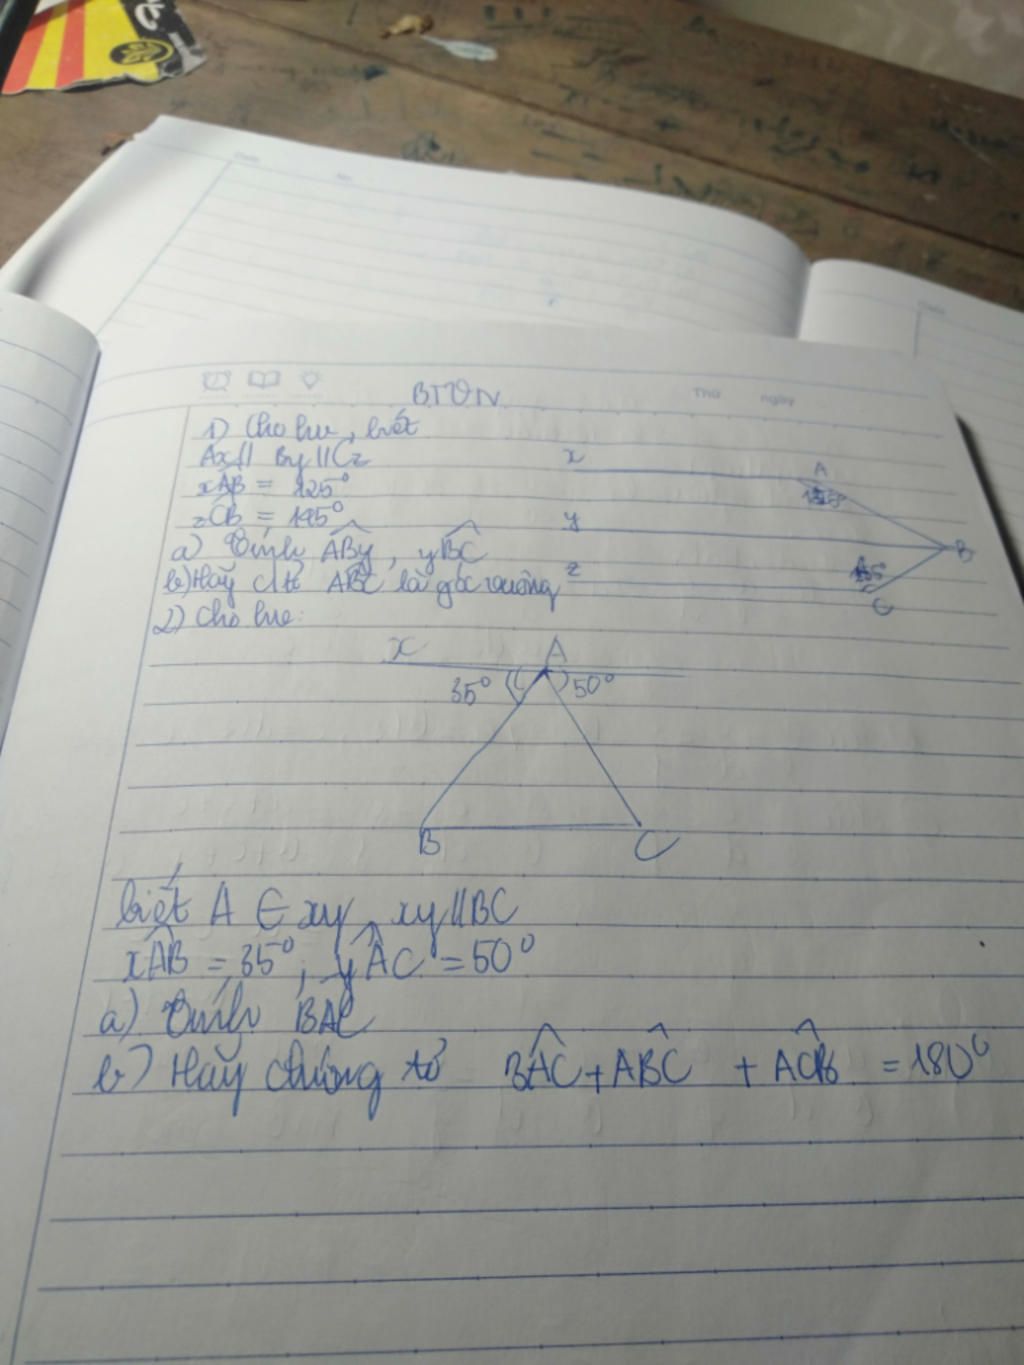 BTVN
1) Cho hve, biết
Ax // By // Cz
xÂB = 125°
zĈB = 145°
a) Tính ABy, yBC
b) Hãy c/tỏ ABC là góc vuông
x
A
y
B
z
C
2) Cho hve:
x
A
35°
50°
B
C
biết A ∈ xy, xy // BC
xÂB = 35°, yÂC = 50°
a) Tính BAC
b) Hãy chứng tỏ BAC + ABC + ACB = 180°
Thứ ngày